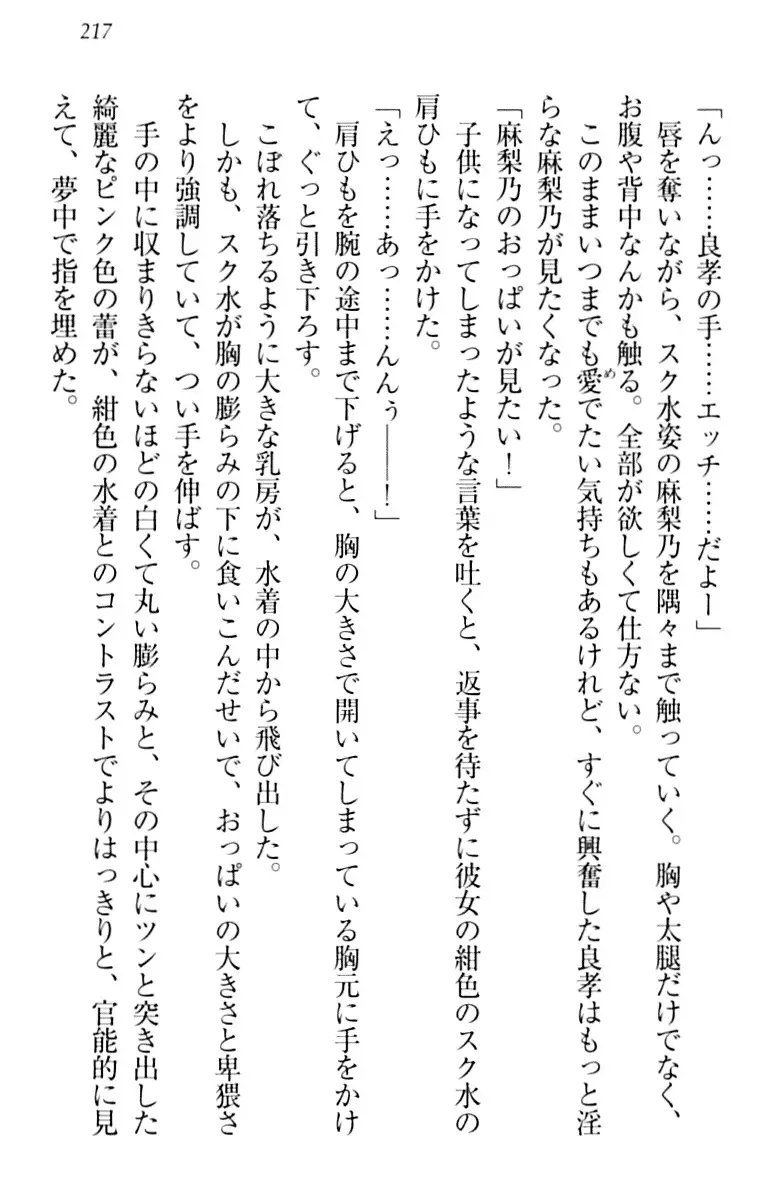 217
「んっ……良孝の手……エッチ……だよー」
唇を奪いながら、スク水姿の麻梨乃を隅々まで触っていく。胸や太腿だけでなく、
お腹や背中なんかも触る。全部が欲しくて仕方ない。
このままいつまでも愛でたい気持ちもあるけれど、すぐに興奮した良孝はもっと淫
め
らな麻梨乃が見たくなった。
「麻梨乃のおっぱいが見たい！」
子供になってしまったような言葉を吐くと、返事を待たずに彼女の紺色のスク水の
肩ひもに手をかけた。
「えっ……あっ……んんぅ――！」
肩ひもを腕の途中まで下げると、胸の大きさで開いてしまっている胸元に手をかけ
て、ぐっと引き下ろす。
こぼれ落ちるように大きな乳房が、水着の中から飛び出した。
しかも、スク水が胸の膨らみの下に食いこんだせいで、おっぱいの大きさと卑猥さ
をより強調していて、つい手を伸ばす。
手の中に収まりきらないほどの白くて丸い膨らみと、その中心にツンと突き出した
綺麗なピンク色の蕾が、紺色の水着とのコントラストでよりはっきりと、官能的に見
えて、夢中で指を埋めた。